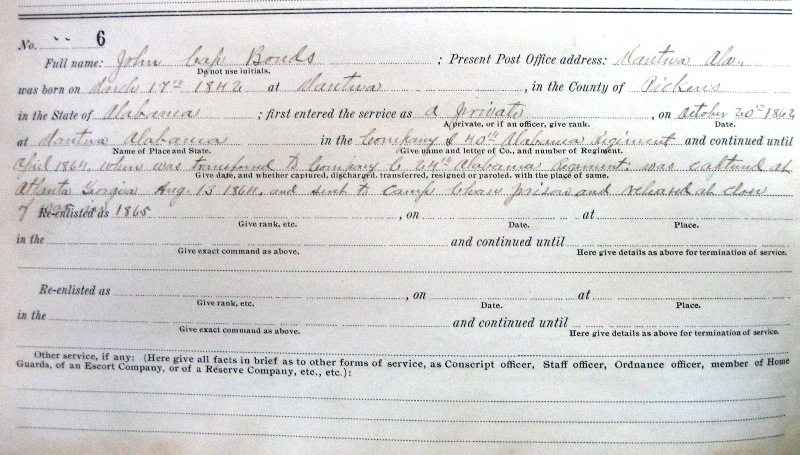 No. " 6
Full name: John Cap Bonds ; Present Post Office address: Mantua Ala.
Do not use initials.
was born on March 17th 1842 at Mantua , in the County of Pickens
in the State of Alabama ; first entered the service as a private , on October 20th 1862
A private, or if an officer, give rank. Date.
at Mantua Alabama in the Company I 40th Alabama Regiment and continued until
Name of Place and State. Give name and letter of Co., and number of Regiment.
April 1864, when was transferred to Company C Alabama Regiment. was captured at
Give date, and whether captured, discharged, transferred, resigned or paroled, with the place of same.
Atlanta Georgia Aug. 13 1864, and sent to Camp Chase prison and released at close
of war in 1865
Re-enlisted as , on at
Give rank, etc. Date. Place.
in the and continued until
Give exact command as above. Here give details as above for termination of service.
Re-enlisted as , on at
Give rank, etc. Date. Place.
in the and continued until
Give exact command as above. Here give details as above for termination of service.
Other service, if any: (Here give all facts in brief as to other forms of service, as Conscript officer, Staff officer, Ordnance officer, member of Home
Guards, of an Escort Company, or of a Reserve Company, etc., etc.):